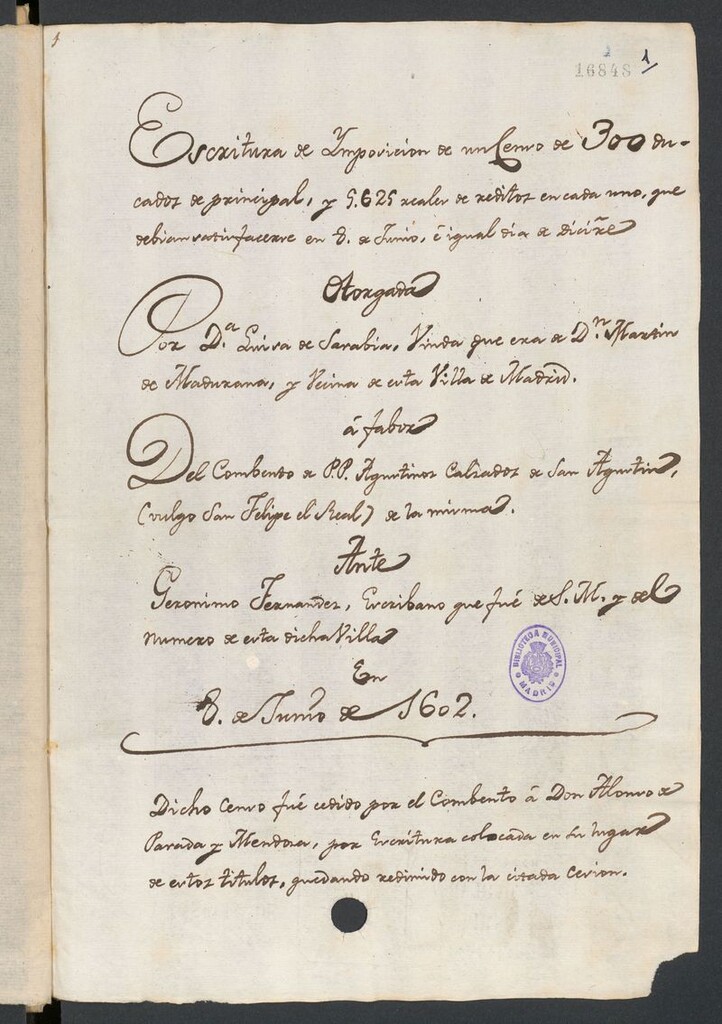 1
2
16848
1
Escritura de Ymposicion de un Censo de 300 du-
cados de principal, y 5.625 reales de reditos en cada uno, que
debian satisfacerse en 8. de Junio, é igual dia de Diciře
Otorgada
Por D.ª Luisa de Sarabia, Viuda que era de D.n Martin
de Madurana, y Vecina de esta Villa de Madrid.
á fabor
Del Combento de P.P. Agustinos Calzados de San Agustin,
(vulgo San Felipe el Real) de la misma.
Ante
Geronimo Fernandez, Escribano que fué de S. M. y del
numero de esta dicha Villa
En
8. de Junio de 1602.
BIBLIOTECA MUNICIPAL
MADRID
Dicho Censo fué cedido por el Combento á Don Alonso de
Parada y Mendoza, por Escritura colocada en su lugar
de estos titulos, quedando redimido con la citada cesion.